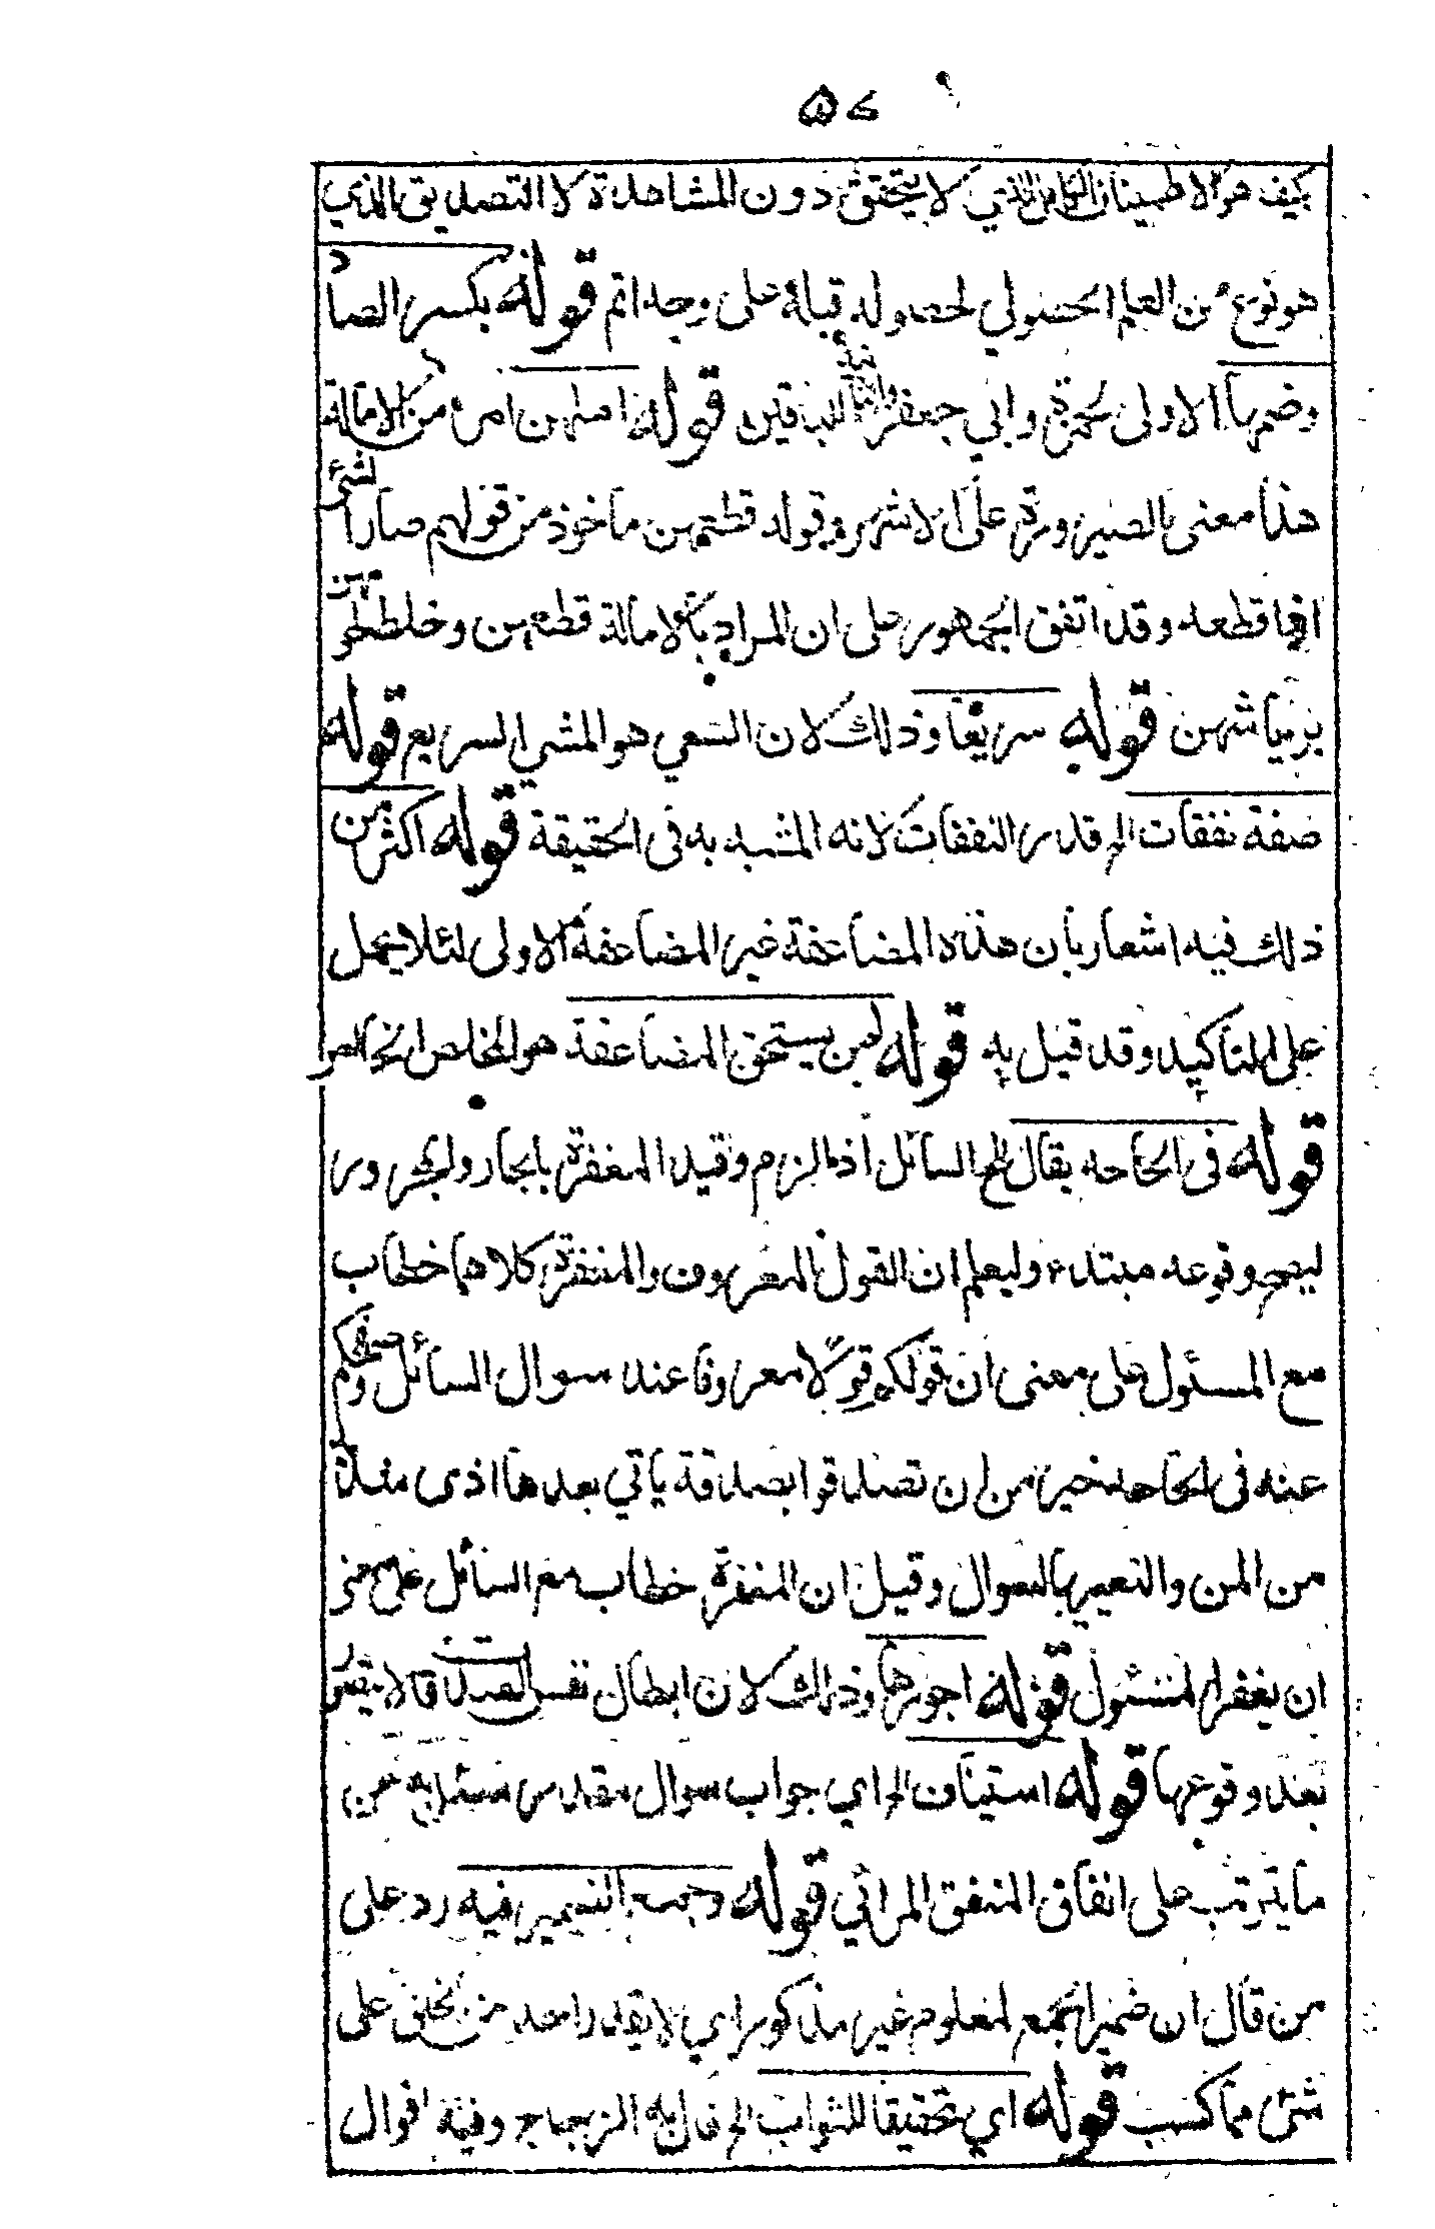 ٥٧
كيف هو الاطمينان الكامل الذي لا يتحقق دون المشاهدة لا التصديق الذي
هو نوع من العلم الحصولي لحصوله قبله على وجه اتم قوله بكسر الصاد
وضمها الاولى لحمزة وابي جعفر للباقين قوله املهن امر من الامالة
هذا معنى بالصيرورة على الاشهر وقوله قطعهن ماخوذ من قولهم صار الشيء
اقطعه وقد اتفق الجمهور على ان المراد بالامالة قطعهن وخلط لحومهن
برياشهن قوله سريعا وذلك لان السعي هو المشي السريع قوله
صفة نفقات الخ قدر النفقات لانه المشبه به في الحقيقة قوله اكثر من
ذلك فيه اشعار بان هذه المضاعفة غير المضاعفة الاولى لئلا يحمل
على التاكيد وقد قيل به قوله لمن يستحق المضاعفة هو المخلص
قوله في الحاحه يقال الح السائل اذا لزم وقيد المغفرة بالجار والمجرور
ليصح وقوعه مبتدء وليعلم ان القول المعروف والمغفرة كلاهما خطاب
مع المسئول على معنى ان قولكم قولا معروفا عند سوال السائل وصفحكم
عنه في الحاحه خير من ان تصدقوا بصدقة ياتي بعدها اذى منكم
من المن والتعيير بالسوال وقيل ان المغفرة خطاب مع السائل على معنى
ان يغفر المسئول قوله اجورها وذلك لان ابطال نفس الصدقة لا يتصور
بعد وقوعها قوله استيناف الخ اي جواب سوال مقدر عن
ما يترتب على انفاق المنفق المرائي قوله وجمع الضمير فيه رد على
من قال ان ضمير الجمع لمعلوم غير مذكور اي لا يقدر احد من الخلق على
شئ مما كسب قوله اي تحقيقا للثواب الخ قال به الزجاج وفيه اقوال